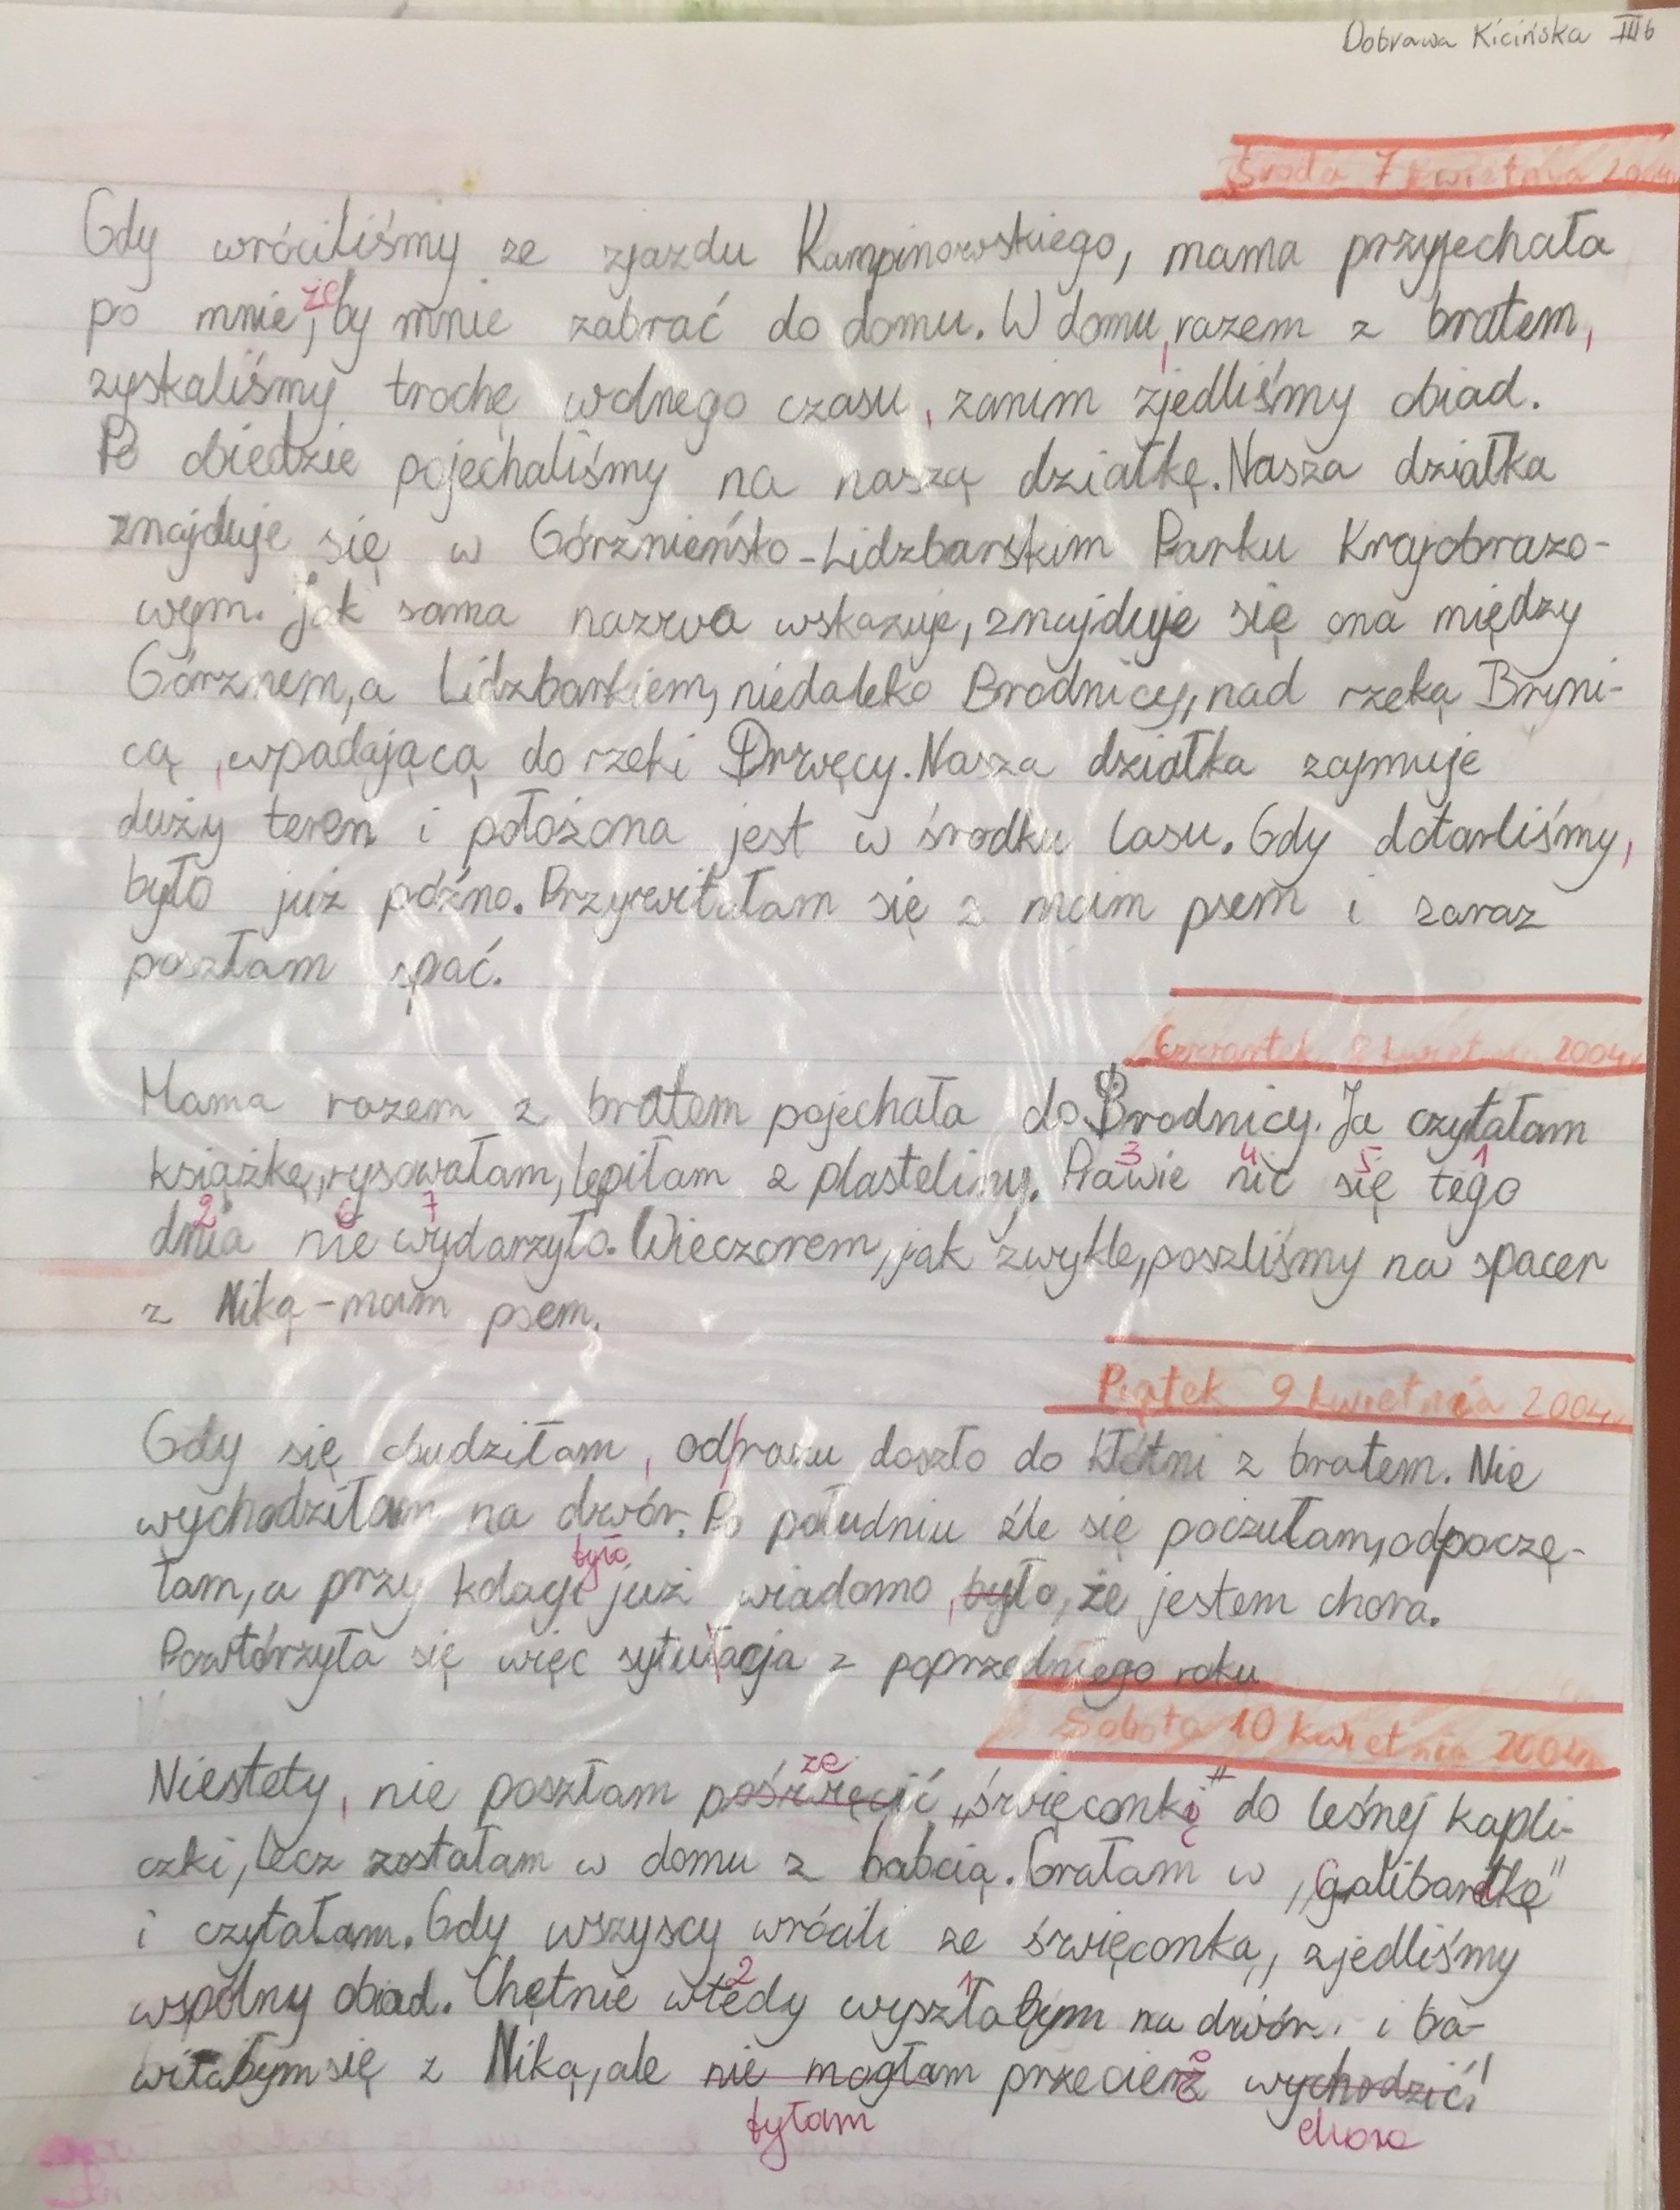 Dobrawa Kicińska III b
Środa 7 kwietnia 2004r.
Gdy wróciliśmy ze zjazdu Kampinowskiego, mama przyjechała
że
po mnie, by mnie zabrać do domu. W domu, razem z bratem,
zyskaliśmy trochę wolnego czasu, zanim zjedliśmy obiad.
Po obiedzie pojechaliśmy na naszą działkę. Nasza działka
znajduje się w Górznieńsko-Lidzbarskim Parku Krajobrazo-
wym. Jak sama nazwa wskazuje, znajduje się ona między
Górznem, a Lidzbarkiem, niedaleko Brodnicy, nad rzeką Bryni-
cą, wpadającą do rzeki Drwęcy. Nasza działka zajmuje
duży teren i położona jest w środku lasu. Gdy dotarliśmy,
było już późno. Przywitałam się z moim psem i zaraz
poszłam spać.
Czwartek 8 kwietnia 2004r.
Mama razem z bratem pojechała do Brodnicy. Ja czytałam
3 4 5 1
książkę, rysowałam, lepiłam z plasteliny. Prawie nic się tego
2 6 7
dnia nie wydarzyło. Wieczorem, jak zwykle, poszliśmy na spacer
z Niką - moim psem.
Piątek 9 kwietnia 2004r.
Gdy się obudziłam, od razu doszło do kłótni z bratem. Nie
wychodziłam na dwór. Po południu źle się poczułam, odpoczę-
było
łam, a przy kolacji już wiadomo, było, że jestem chora.
Powtórzyła się więc sytułacja z poprzedniego roku
Sobota 10 kwietnia 2004r.
ze
Niestety, nie poszłam poświęcić „święconki" do leśnej kapli-
czki, lecz zostałam w domu z babcią. Grałam w „Galibardkę"
i czytałam. Gdy wszyscy wrócili ze święconką, zjedliśmy
2 1
wspólny obiad. Chętnie wtedy wyszłabym na dwór i ba-
wiłabym się z Niką, ale nie mogłam przecierz wychodzić!
byłam ż chora